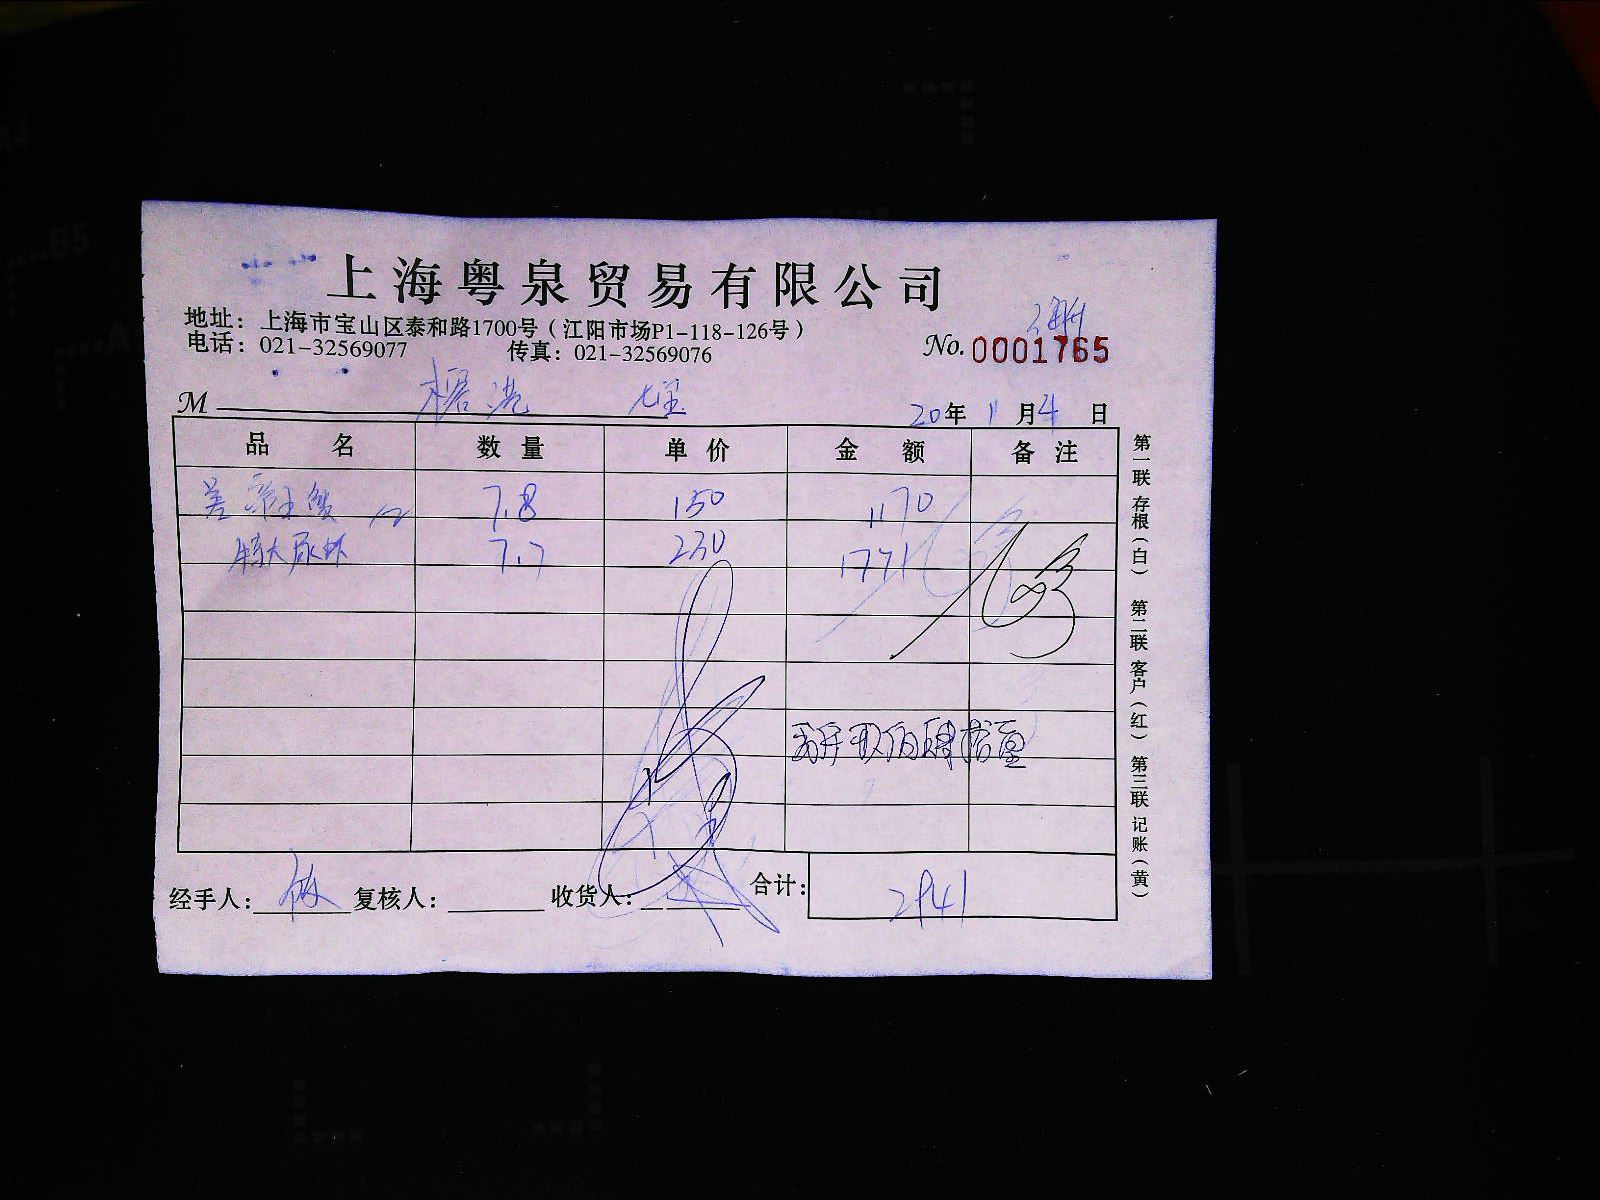 上海粤泉贸易有限公司
地址：上海市宝山区泰和路1700号（江阳市场P1-118-126号）
电话：021-32569077 传真：021-32569076
No. 0001765
M
20年 11月4日
品名 数量 单价 金额 备注
7.8 150 1170
特大 7.7 230 1771
合计：2941
经手人： 复核人： 收货人：
第一联 存根（白） 第二联 客户（红） 第三联 记账（黄）